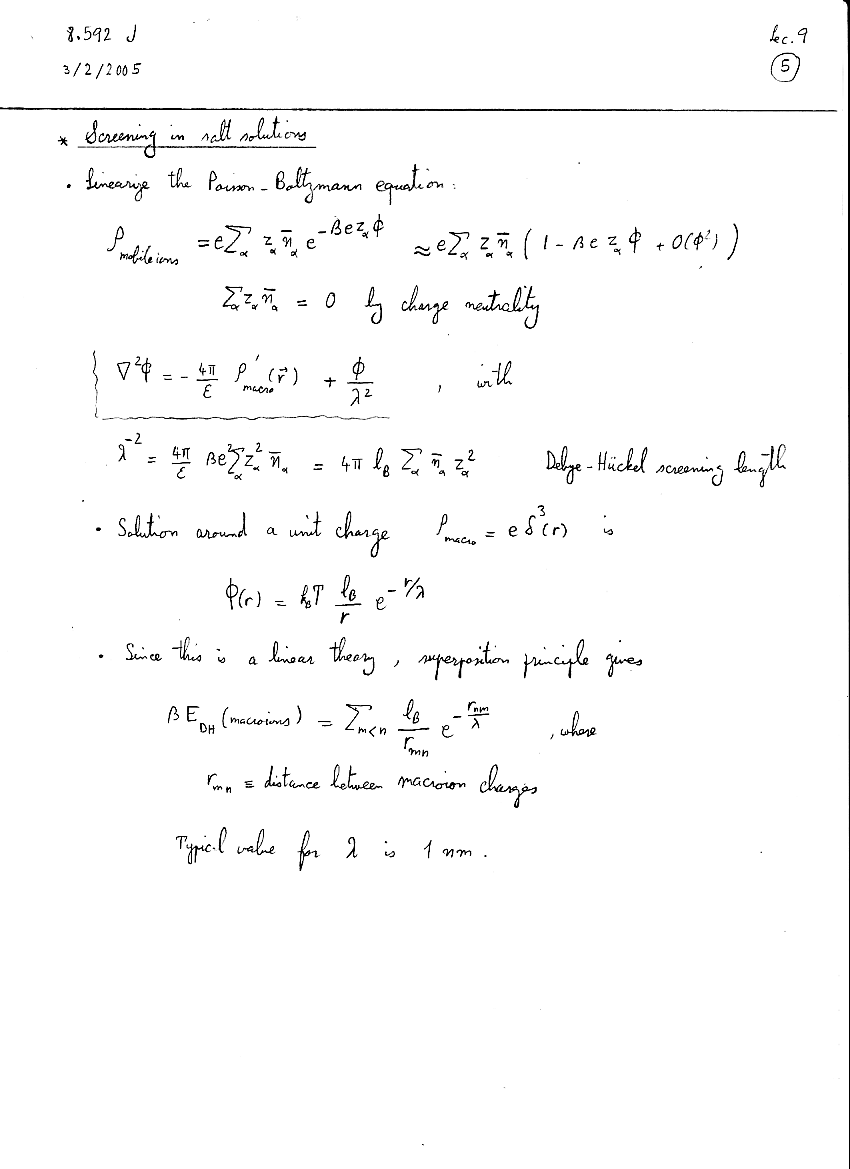 8.592 J Lec. 9
3/2/2005 5
* Screening in salt solutions
• Linearize the Poisson-Boltzmann equation:
ρ_mobile ions = e Σ_α z_α n̄_α e^{-βe z_α ϕ} ≈ e Σ_α z_α n̄_α (1 - βe z_α ϕ + O(ϕ²))
Σ_α z_α n̄_α = 0 by charge neutrality
∇²ϕ = - 4π/ε ρ'_macro(r⃗) + ϕ/λ² , with
λ^{-2} = 4π/ε βe² Σ_α z_α² n̄_α = 4π l_B Σ_α n̄_α z_α² Debye-Hückel screening length
• Solution around a unit charge ρ_macro = e δ³(r) is
ϕ(r) = k_BT l_B/r e^{-r/λ}
• Since this is a linear theory, superposition principle gives
β E_DH (macroions) = Σ_{m<n} l_B/r_mn e^{-r_nm/λ} , where
r_mn ≡ distance between macroion charges
Typical value for λ is 1 nm.